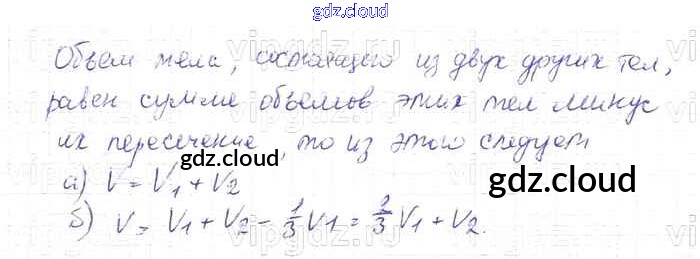 gdz.cloud
Объем тела, состоящего из двух других тел,
равен сумме объемов этих тел минус
их пересечение, то из этого следует
gdz.cloud
а) V = V₁ + V₂
gdz.cloud
б) V = V₁ + V₂ - 1/3 V₁ = 2/3 V₁ + V₂.